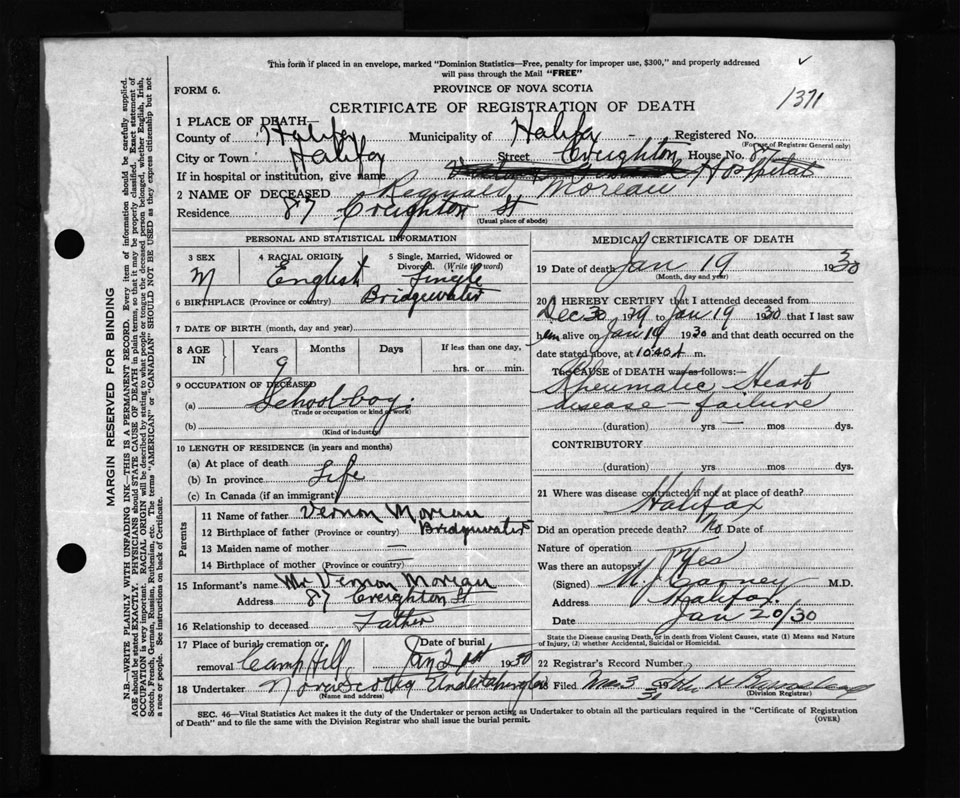 This form if placed in an envelope, marked "Dominion Statistics—Free, penalty for improper use, $300," and properly addressed
will pass through the Mail "FREE"
FORM 6.
PROVINCE OF NOVA SCOTIA
1371
CERTIFICATE OF REGISTRATION OF DEATH
1 PLACE OF DEATH—
County of Halifax Municipality of Halifax Registered No.
(For use of Registrar General only)
City or Town Halifax Street Creighton House No. 87
If in hospital or institution, give name Hospital
2 NAME OF DECEASED Reginald Moreau
Residence 87 Creighton St
(Usual place of abode)
PERSONAL AND STATISTICAL INFORMATION
3 SEX M
4 RACIAL ORIGIN English
5 Single, Married, Widowed or Divorced. (Write the word) Single
6 BIRTHPLACE (Province or country) Bridgewater
7 DATE OF BIRTH (month, day and year)
8 AGE IN Years 9 Months Days If less than one day, hrs. or min.
9 OCCUPATION OF DECEASED
(a) Schoolboy.
(Trade or occupation or kind of work)
(b)
(Kind of industry)
10 LENGTH OF RESIDENCE (in years and months)
(a) At place of death
(b) In province Life
(c) In Canada (if an immigrant)
Parents
11 Name of father Vernon Moreau
12 Birthplace of father (Province or country) Bridgewater
13 Maiden name of mother —
14 Birthplace of mother —
15 Informant's name Mr Vernon Moreau
Address 87 Creighton St
16 Relationship to deceased Father
17 Place of burial cremation or removal Camp Hill
Date of burial Jan 21st 1930
18 Undertaker Nova Scotia Undertaking Co
(Name and address)
MEDICAL CERTIFICATE OF DEATH
19 Date of death Jan 19 1930
(Month, day and year)
20 I HEREBY CERTIFY that I attended deceased from
Dec 30 1929 to Jan 19 1930 that I last saw
him alive on Jan 19 1930 and that death occurred on
date stated above, at 10.40 A m.
The CAUSE OF DEATH was as follows:—
Rheumatic Heart
disease — failure
(duration) yrs — mos dys.
CONTRIBUTORY
(duration) yrs mos dys.
21 Where was disease contracted if not at place of death?
Halifax
Did an operation precede death? No Date of
Nature of operation
Was there an autopsy? Yes
(Signed) Carney M.D.
Address Halifax.
Date Jan 20/30
State the Disease causing Death, or in death from Violent Causes, state (1) Means and Nature
of Injury, (2) whether Accidental, Suicidal or Homicidal.
22 Registrar's Record Number
Filed
(Division Registrar)
SEC. 46—Vital Statistics Act makes it the duty of the Undertaker or person acting as Undertaker to obtain all the particulars required in the "Certificate of Registration
of Death" and to file the same with the Division Registrar who shall issue the burial permit.
(OVER)
MARGIN RESERVED FOR BINDING
N.B.—WRITE PLAINLY WITH UNFADING INK—THIS IS A PERMANENT RECORD. Every item of information should be carefully supplied.
AGE should be stated EXACTLY. PHYSICIANS should STATE CAUSE OF DEATH in plain terms, so that it may be properly classified. Exact statement of
OCCUPATION is very important. RACIAL ORIGIN will be described by stating to what people or tongue the deceased person belonged, whether English, Irish,
Scotch, French, German, Russian, Ruthenian, etc. The terms "AMERICAN" or "CANADIAN" SHOULD NOT BE USED as they express citizenship but not
a race or people. See instructions on back of Certificate.